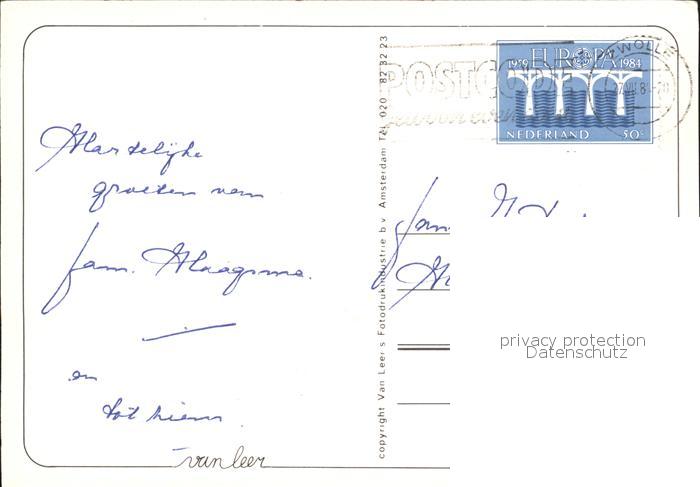 Hartelijke
groeten van
fam. Haagsma.
en
tot ziens
van leer
copyright Van Leer's Fotodrukindustrie b.v. Amsterdam Tel. 020 - 82 32 23
POSTCODE
ZWOLLE
1959 EUROPA 1984
NEDERLAND 50c
fam.
privacy protection
Datenschutz